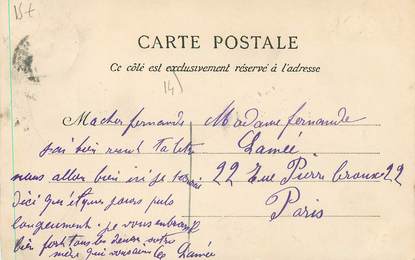 15+
CARTE POSTALE
Ce côté est exclusivement réservé à l'adresse
14
Ma cher fernande
j'ai bien recut ta lettre
nous allon bien ici je
dici quelque jours
longeument je vous embrasse
bien fort tous les deux votre
mère qui vous aime Lamée
Madame fernande
Lamée
22 Rue Pierre Leroux 22
Paris